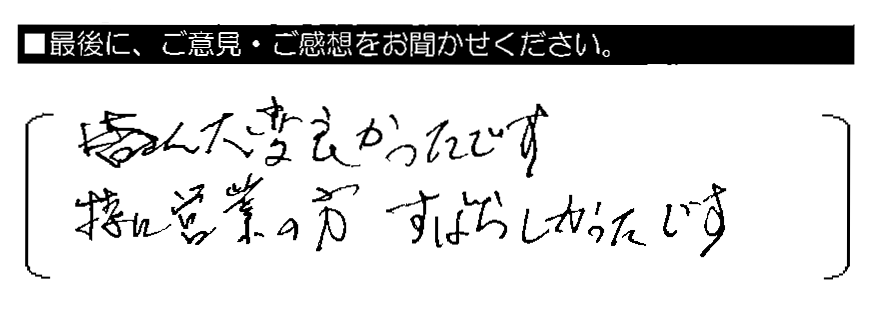 ■最後に、ご意見・ご感想をお聞かせください。
皆さん大変良かったです
特に営業の方 すばらしかったです